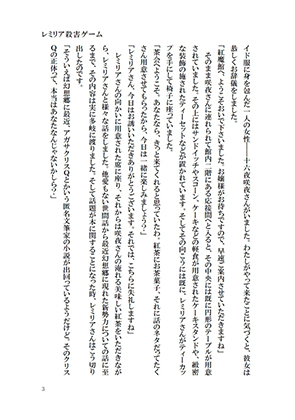 レミリア殺害ゲーム
イド服に身を包んだ一人の女性――十六夜咲夜さんがいました。わたしがやって来たことに気づくと、彼女は
恭しくお辞儀をしました。
「紅魔館へ、ようこそおいで下さいました。お嬢様がお待ちですので、早速ご案内させていただきますね」
そのまま咲夜さんに連れられて館内二階にある応接間でとんると、その中央には既に円形のテーブルが用意
されていました。その上にはサンドイッチやスコーン、ケーキなどの軽食が用意されたケーキスタンドや、緻密
な装飾の施されたティーセットなどが置かれています。そしてその向こうには既に、レミリアさんがティーカッ
プを手にして椅子に座っていました。
「茶会へようこそ、あなたなら、きっと来てくれると思っていたわ。紅茶にお茶菓子、それに話のネタだってたく
さん用意させてもらったから、今日は一緒に楽しみましょう?」
「レミリアさん、今日はお誘いいただきありがとうございます。それでは、こちらに失礼しますね」
レミリアさんの向かいに用意された席に座り、それからは咲夜さんの淹れる美味しい紅茶をいただきなが
ら、レミリアさんと様々な話をしました。他愛もない世間話から最近幻想郷に現れた新勢力についての話に至
るまで、その内容は実に多岐に渡りました。そして話題が本に関することになった時、レミリアさんはこう切り
出したのです。
「そういえば幻想郷に最近、アガサクリスQとかいう匿名文筆家の小説が出回っているようだけど、そのクリス
Qの正体って、本当はあなたなんじゃないかしら?」
3